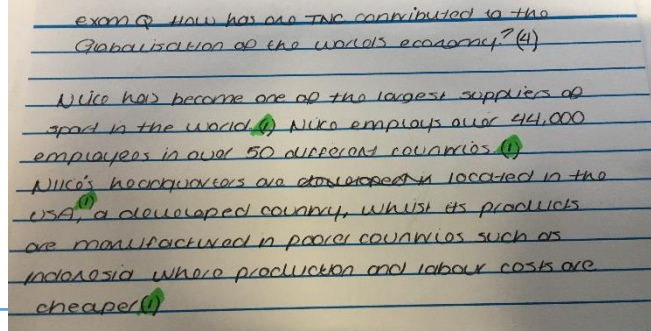 exam Q How has one TNC contributed to the
Globalisation of the worlds economy? (4)
Nike has become one of the largest suppliers of
sport in the world. (1) Nike employs over 44,000
employees in over 50 different countries. (1)
Nike's headquarters are developed in located in the
USA, (1) a developed country, whilst its products
are manufactured in poorer countries such as
Indonesia where production and labour costs are
cheaper (1)